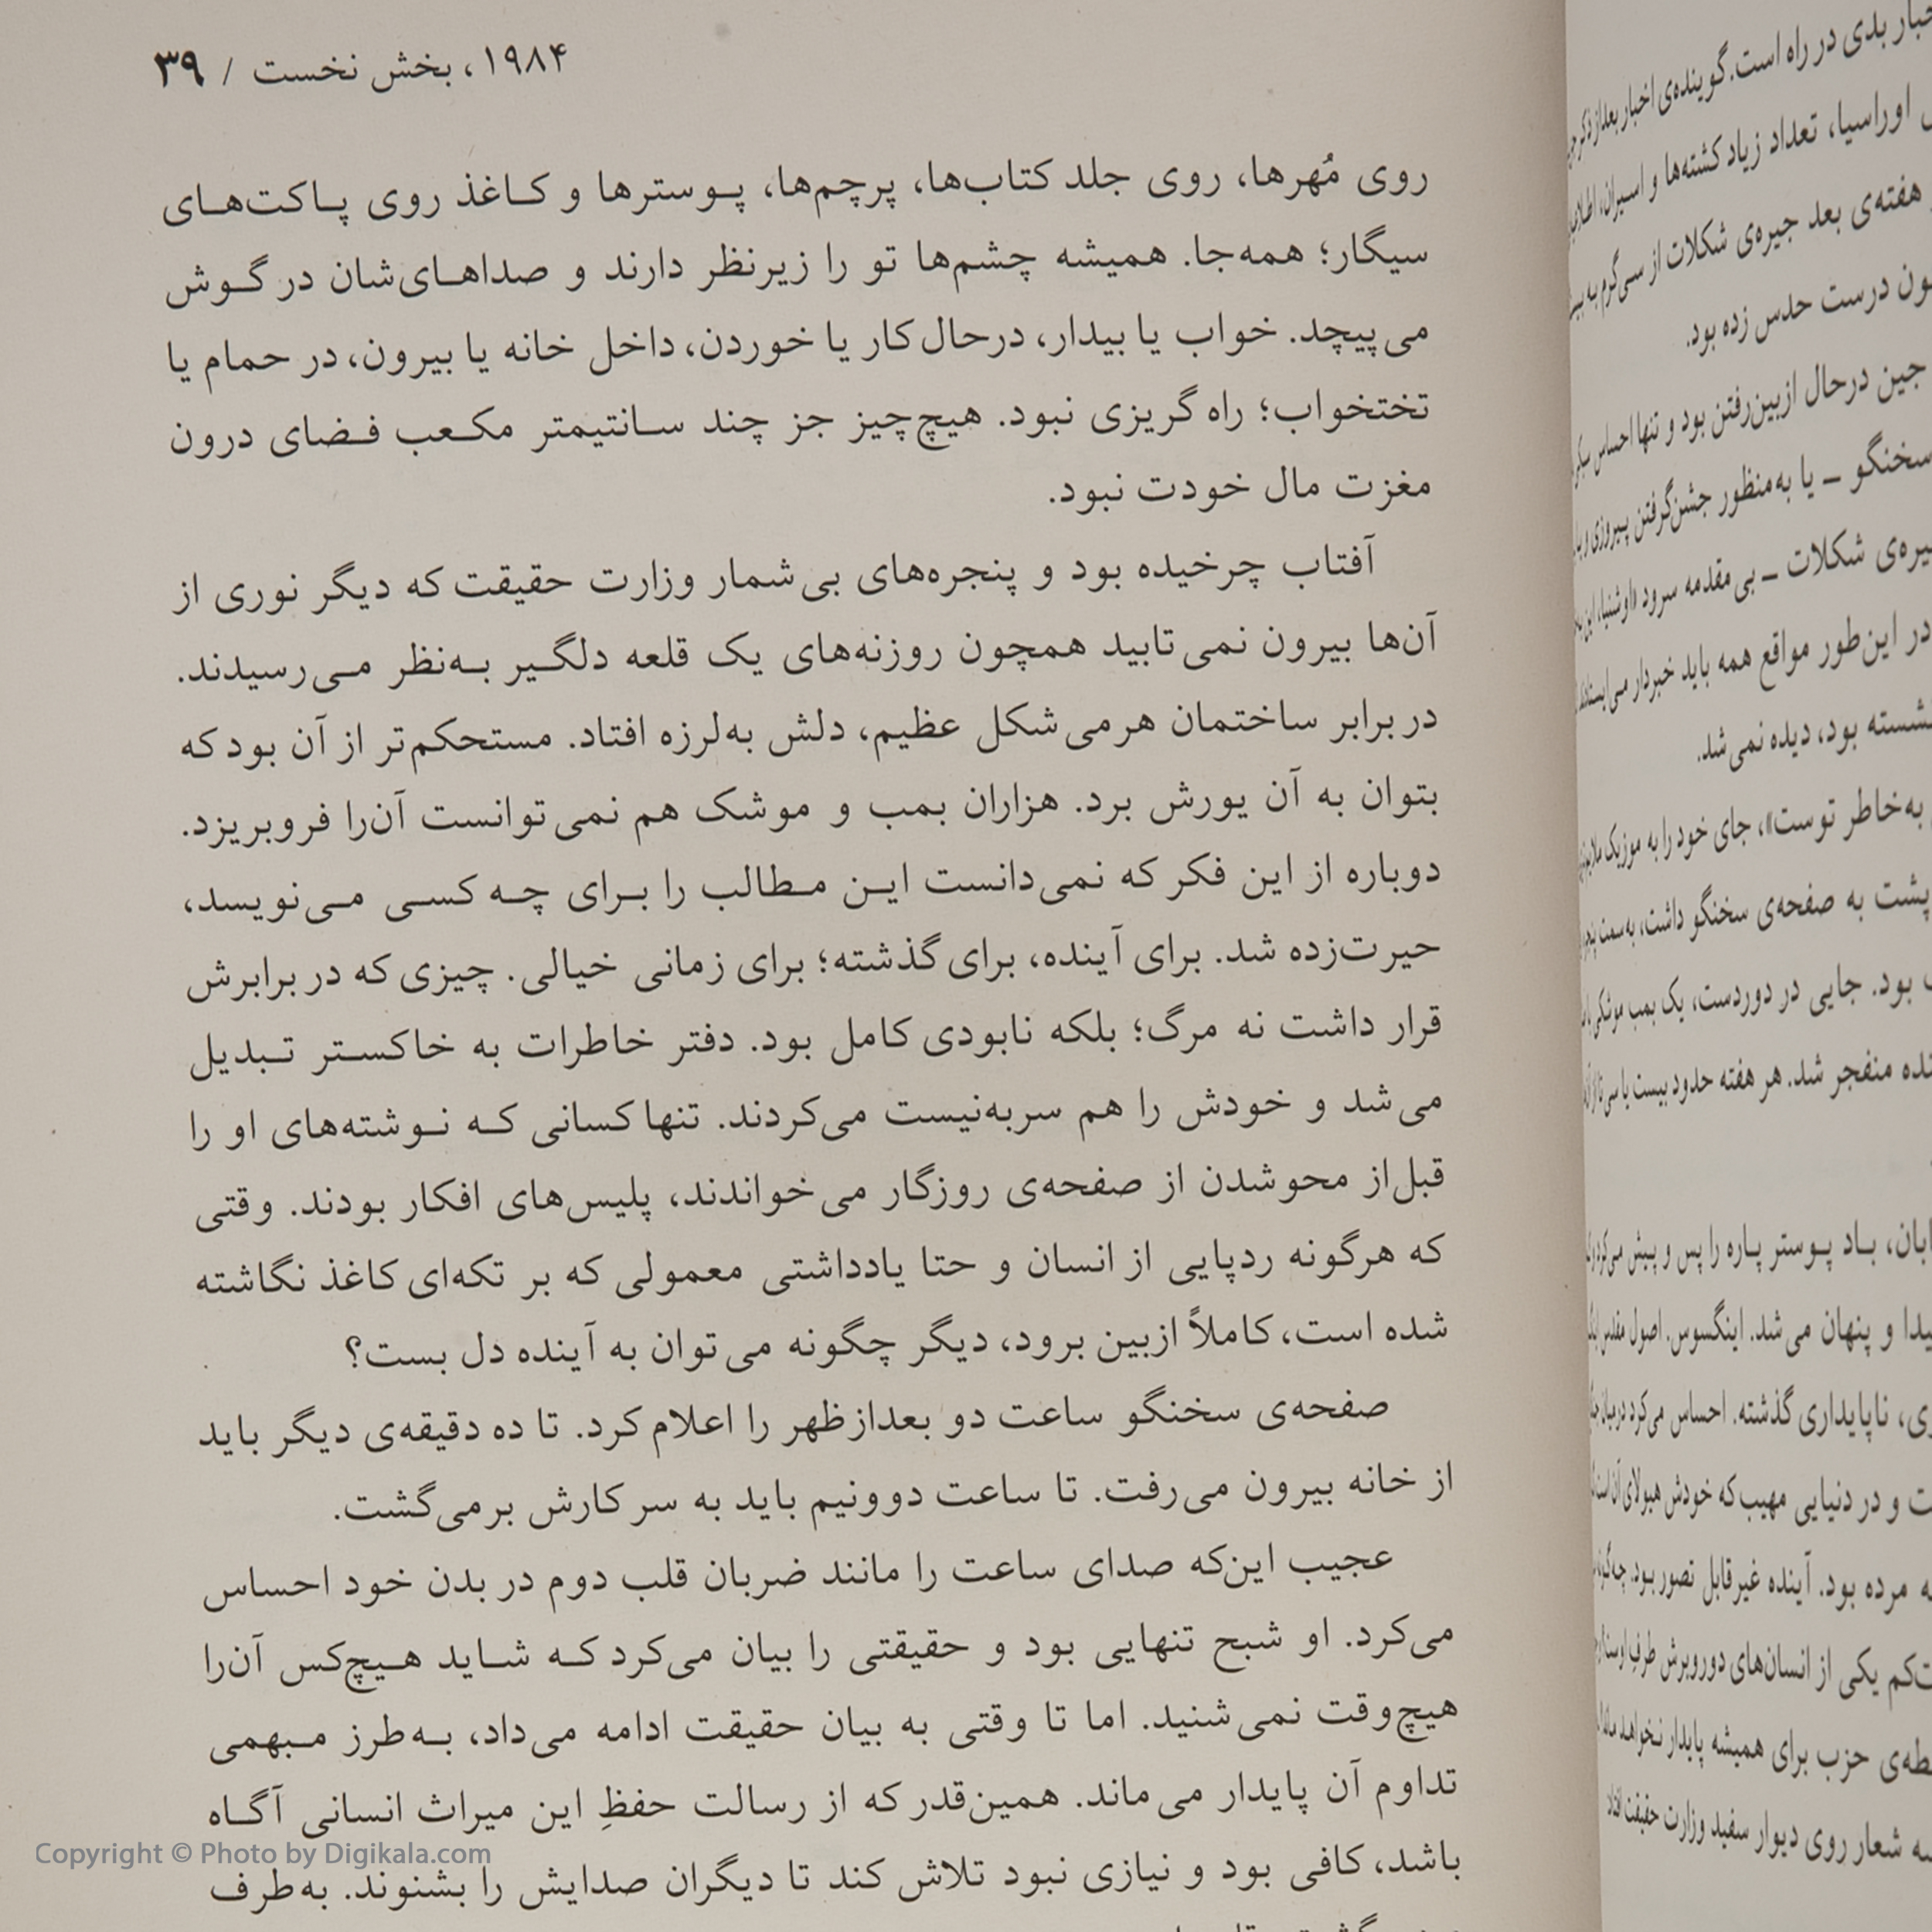 ۱۹۸۴، بخش نخست / ۳۹
روی مُهرها، روی جلد کتاب‌ها، پرچم‌ها، پوسترها و کاغذ روی پاکت‌های
سیگار؛ همه‌جا. همیشه چشم‌ها تو را زیرنظر دارند و صداهای‌شان در گوش
می‌پیچد. خواب یا بیدار، درحال کار یا خوردن، داخل خانه یا بیرون، در حمام یا
تختخواب؛ راه گریزی نبود. هیچ‌چیز جز چند سانتیمتر مکعب فضای درون
مغزت مال خودت نبود.
آفتاب چرخیده بود و پنجره‌های بی‌شمار وزارت حقیقت که دیگر نوری از
آن‌ها بیرون نمی‌تابید همچون روزنه‌های یک قلعه دلگیر به‌نظر می‌رسیدند.
در برابر ساختمان هرمی‌شکل عظیم، دلش به‌لرزه افتاد. مستحکم‌تر از آن بود که
بتوان به آن یورش برد. هزاران بمب و موشک هم نمی‌توانست آن‌را فروبریزد.
دوباره از این فکر که نمی‌دانست این مطالب را برای چه کسی می‌نویسد،
حیرت‌زده شد. برای آینده، برای گذشته؛ برای زمانی خیالی. چیزی که در برابرش
قرار داشت نه مرگ؛ بلکه نابودی کامل بود. دفتر خاطرات به خاکستر تبدیل
می‌شد و خودش را هم سربه‌نیست می‌کردند. تنها کسانی که نوشته‌های او را
قبل‌از محوشدن از صفحه‌ی روزگار می‌خواندند، پلیس‌های افکار بودند. وقتی
که هرگونه ردپایی از انسان و حتا یادداشتی معمولی که بر تکه‌ای کاغذ نگاشته
شده است، کاملاً ازبین برود، دیگر چگونه می‌توان به آینده دل بست؟
صفحه‌ی سخنگو ساعت دو بعدازظهر را اعلام کرد. تا ده دقیقه‌ی دیگر باید
از خانه بیرون می‌رفت. تا ساعت دوونیم باید به سر کارش برمی‌گشت.
عجیب این‌که صدای ساعت را مانند ضربان قلب دوم در بدن خود احساس
می‌کرد. او شبح تنهایی بود و حقیقتی را بیان می‌کرد که شاید هیچ‌کس آن‌را
هیچ‌وقت نمی‌شنید. اما تا وقتی به بیان حقیقت ادامه می‌داد، به‌طرز مبهمی
تداوم آن پایدار می‌ماند. همین‌قدر که از رسالت حفظِ این میراث انسانی آگاه
باشد، کافی بود و نیازی نبود تلاش کند تا دیگران صدایش را بشنوند. به‌طرف
Copyright © Photo by Digikala.com
بدی در راه است. گوینده‌ی اخبار بعداز ذکر
اوراسیا، تعداد زیاد کشته‌ها و اسیران،
هفته‌ی بعد جیره‌ی شکلات از سی‌گرم به
درست حدس زده بود.
جین درحال ازبین‌رفتن بود و تنها احساس
سخنگو ــ یا به‌منظور جشن‌گرفتن پیروزی و
شکلات ــ بی‌مقدمه سرود «اوشنیا،
در این‌طور مواقع همه باید خبردار می‌ایستادند.
بود، دیده نمی‌شد.
به‌خاطر توست»، جای خود را به موزیک
پشت به صفحه‌ی سخنگو داشت، به‌سمت
بود. جایی در دوردست، یک بمب موشکی
منفجر شد. هر هفته حدود بیست یا سی‌تا از
باد پوستر پاره را پس و پیش می‌کرد
و پنهان می‌شد. اینگسوس. اصول مقدس
ناپایداری گذشته. احساس می‌کرد
و در دنیایی مهیب که خودش هیولای آن است
مرده بود. آینده غیرقابل تصور بود.
یکی از انسان‌های دوروبرش طرفِ
حزب برای همیشه پایدار نخواهد
شعار روی دیوار سفید وزارت حقیقت